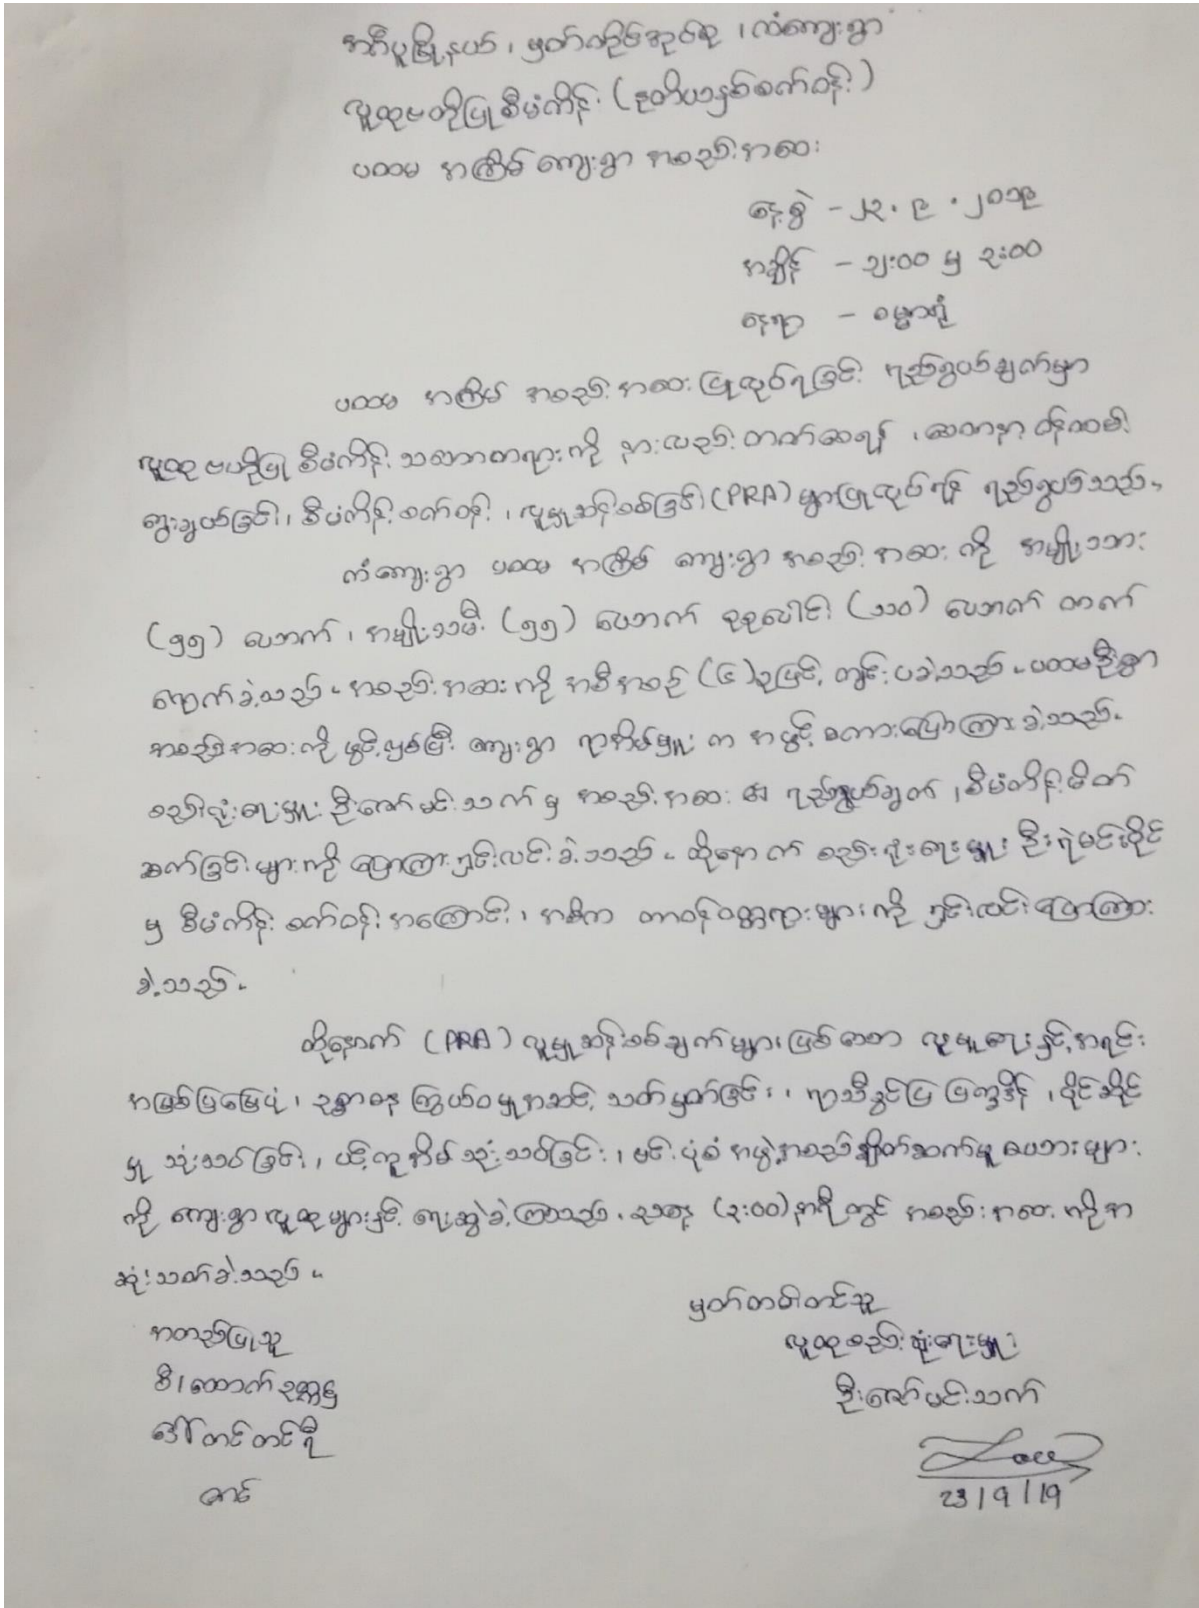 အင်္ဂပူမြို့နယ်၊ မှတ်တိုင်အုပ်စု ၊ကံကျေးရွာ
လူထုဗဟိုပြုစီမံကိန်း (ဒုတိယနှစ်စက်ဝန်း)
ပထမ အကြိမ် ကျေးရွာ အစည်းအဝေး
နေ့စွဲ - ၂၃.၉.၂၀၁၉
အချိန် - ၁၂:၀၀ မှ ၃:၀၀
နေရာ - ဓမ္မာရုံ
ပထမ အကြိမ် အစည်းအဝေး ပြုလုပ်ရခြင်း ရည်ရွယ်ချက်မှာ
လူထုဗဟိုပြု စီမံကိန်း သဘောတရားကို နားလည် တတ်စေရန် ၊စေတနာ့ ဝန်ထမ်း
ရွေးချယ်ခြင်း၊ စီမံကိန်း စက်ဝန်း ၊လူမှုဆန်းစစ်ခြင်း(PRA)များပြုလုပ်ရန် ရည်ရွယ်သည်။
ကံကျေးရွာ ပထမ အကြိမ် ကျေးရွာ အစည်းအဝေး ကို အမျိုးသား
(၅၅) ယောက်၊ အမျိုးသမီး (၅၅) ယောက် စုစုပေါင်း (၁၁၀) ယောက် တက်
ရောက်ခဲ့သည်။ အစည်းအဝေးကို အစီအစဉ် (၆)ခုဖြင့် ကျင်းပခဲ့သည်။ ပထမဦးစွာ
အစည်းအဝေးကို ဖွင့်လှစ်ပြီး ကျေးရွာ ရာအိမ်မှူး က အဖွင့် စကားပြောကြားခဲ့သည်။
စည်းရုံးရေးမှူး ဦးဇော်မင်းသက် မှ အစည်းအဝေး ၏ ရည်ရွယ်ချက် ၊စီမံကိန်းမိတ်
ဆက်ခြင်းများကို ပြောကြားရှင်းလင်းခဲ့သည်။ ထို့နောက် စည်းရုံးရေးမှူး ဦးရဲမင်းစိုင်
မှ စီမံကိန်း စက်ဝန်းအကြောင်း၊ အဓိက တာဝန်ဝတ္တရားများကို ရှင်းလင်းပြောကြား
ခဲ့သည်။
ထို့နောက် (PRA) လူမှုဆန်းစစ်ချက်များဖြစ်သော လူမှုရေးနှင့်အရင်း
အမြစ်ပြမြေပုံ၊ ဥစ္စာဓန ကြွယ်ဝမှုအဆင့် သတ်မှတ်ခြင်း၊ ရာသီခွင်ပြ ပြက္ခဒိန် ၊ပိုင်ဆိုင်
မှု သုံးသပ်ခြင်း၊ ပင့်ကူအိမ်သုံးသပ်ခြင်း၊ ဗင်းပုံစံ အဖွဲ့အစည်းချိတ်ဆက်မှု ဇယားများ
ကို ကျေးရွာလူထုများနှင့် ရေးဆွဲခဲ့ကြသည်။ ညနေ (၃:၀၀)နာရီ တွင် အစည်းအဝေး ကို အ
ဆုံးသတ်ခဲ့သည်။
မှတ်တမ်းတင်သူ
အတည်ပြုသူ
လူထုစည်းရုံးရေးမှူး
စီ၊ထောက်ဥက္ကဋ္ဌ
ဦးဇော်မင်းသက်
ဒေါ်တင်တင်ရီ
တင်
23/9/19